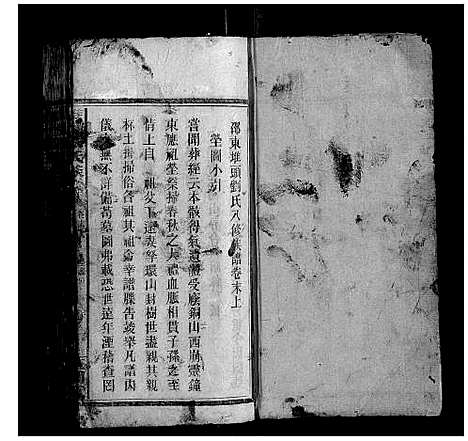 邵東堆頭劉氏八修族譜卷末上
塋圖小引
嘗聞葬經云本骸得氣遺體受廕銅山西崩靈鐘
東應祖塋祭掃春秋之大禮血脈相貫子孫之至
情上自祖父下逮雲礽環山封樹世盡親其親
杯土拜掃俗各祖其祖侖幸譜牒告竣舉凡譜內
儀無不詳備茍墓圖弗載恐世遠年湮稽查罔